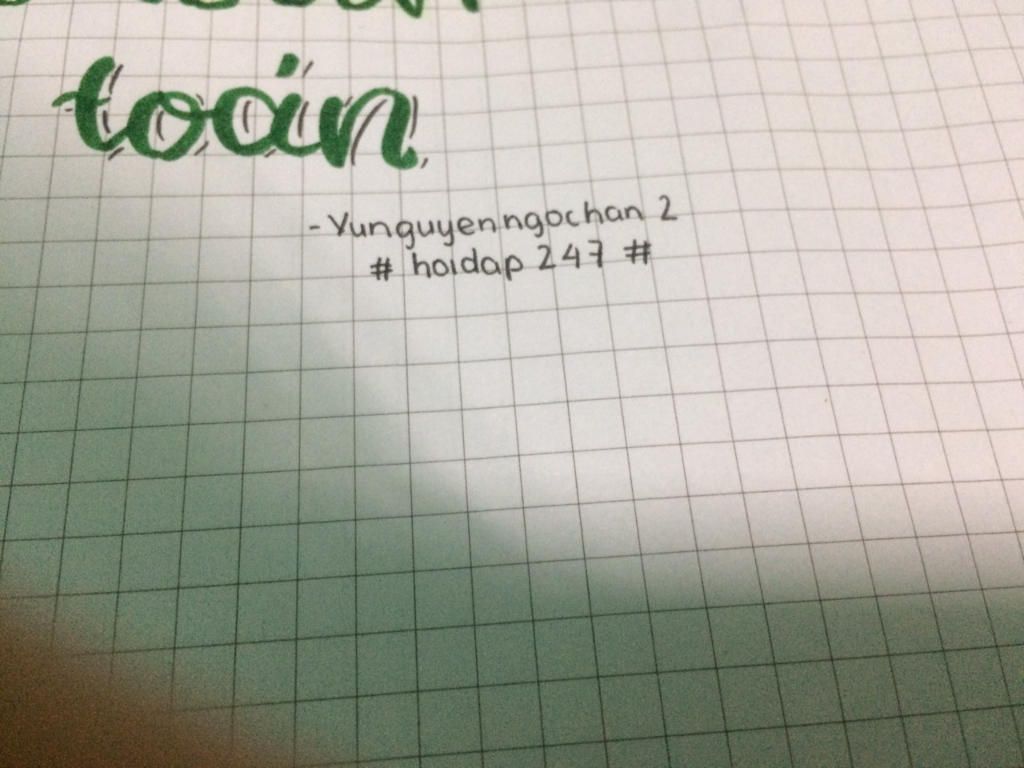 toán
- Yunguyenngochan 2
# hoidap 247 #